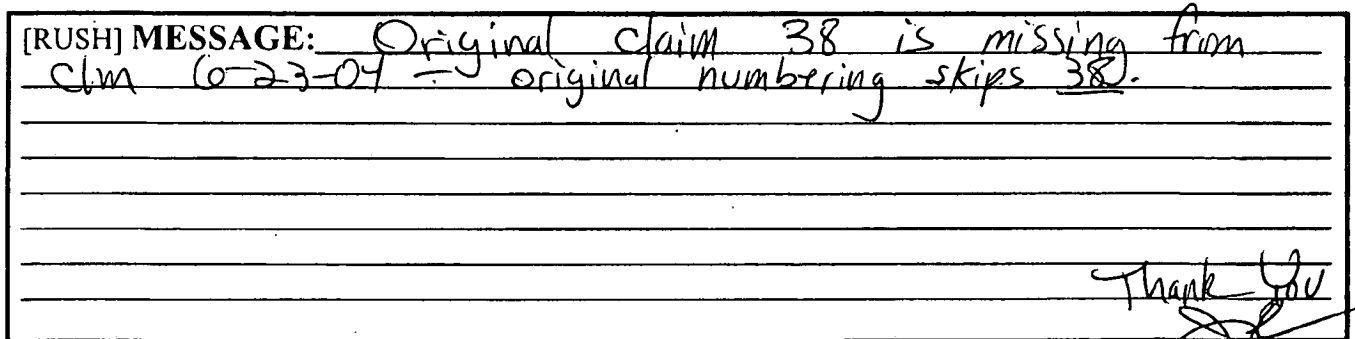 [RUSH] MESSAGE: Original claim 38 is missing from
clm 6-23-04 – original numbering skips 38.
Thank You